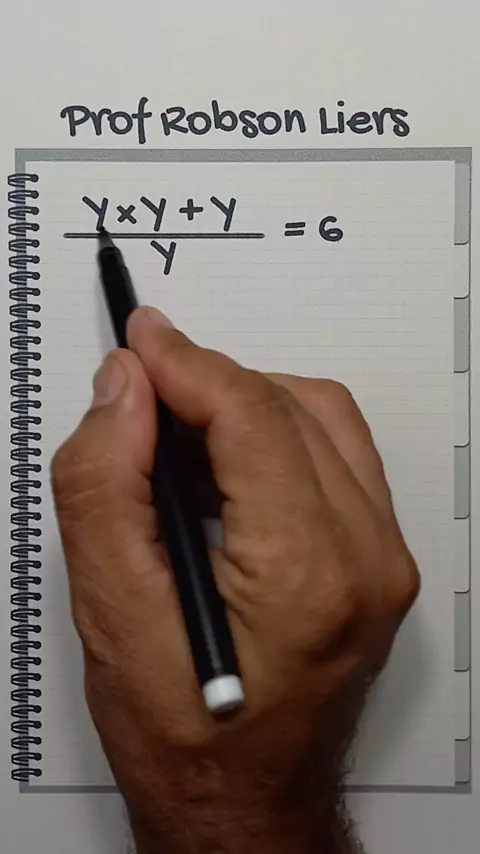 Prof Robson Liers
y × y + y
y
= 6